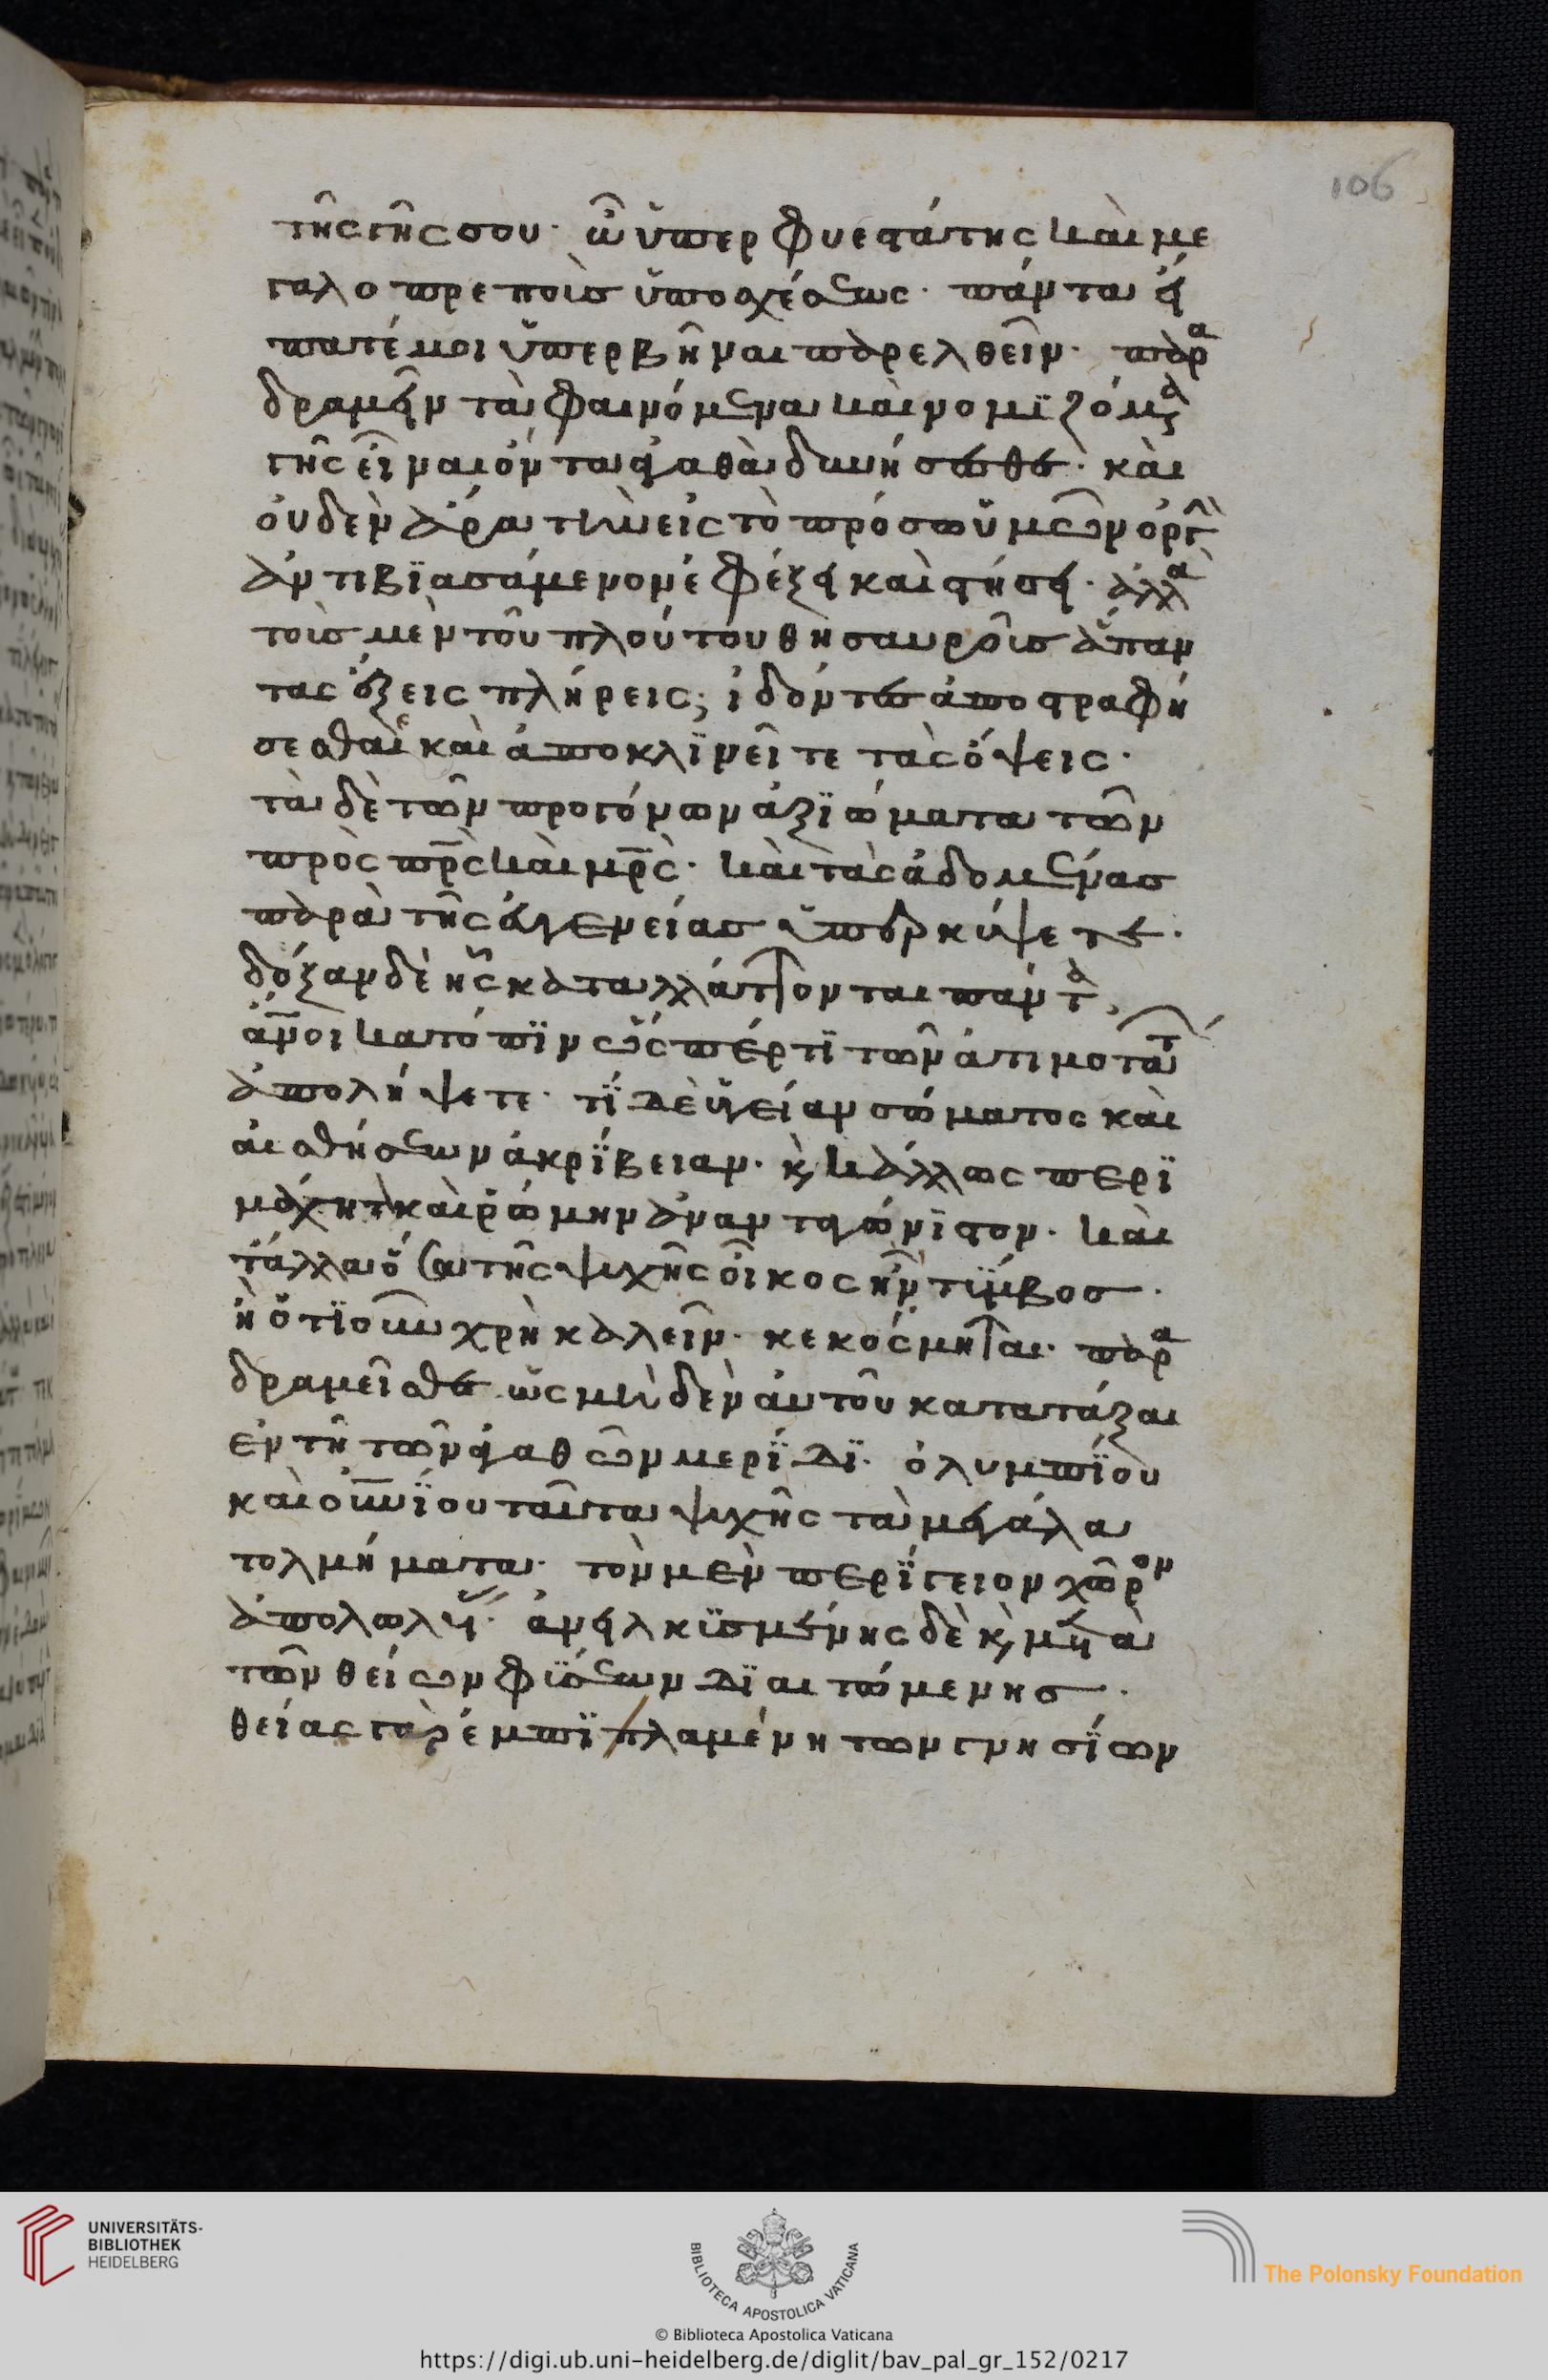 106
τῆς γῆς σου· ὢ ὑπερφυεστάτης καὶ με
γαλοπρεποῦς ὑποσχέσεως· πάντα ἀ
γαπατέ μοι ὑπερβῆναι παρελθεῖν· παρα
δραμεῖν τὰ φαινόμενα καὶ νομιζόμενα
τῆς εἶναι ὄντα ἀγαθὰ δυνήσεσθε· καὶ
οὐδὲν ἄρα τὴν εἰς τὸ πρόσω ὑμῶν ὁρμὴν
ἀντιβιασάμενον ἐφέξει καὶ στήσει· ἀλλὰ
τοῖς μὲν τοῦ πλούτου θησαυροῖς ἅπαν
τας ἕξεις πλήρεις; ἰδόντες ἀποστραφή
σεσθαι καὶ ἀποκλινεῖτε τὰς ὄψεις·
τὰ δὲ τῶν προγόνων ἀξιώματα τῶν
πρὸς πρς καὶ μρς· καὶ τὰς ἀδομένας
παρὰ τῆς εὐγενείας ὑπερκύψετε·
δόξαν δὲ ἧς καταλλάττονται πάντα
ἄνοι κατόπιν ὥσπέρ τι τῶν ἀτιμοτάτ
ἀπολήψετε· τί δὲ ὑγείαν σώματος καὶ
αἰσθήσεων ἀκρίβειαν· κ κάλλος περι
μάχητον καὶ ῥώμην ἀνανταγώνιστον· καὶ
τἄλλα ὅσα τῆς ψυχῆς οἶκος ἢ τύμβος·
ἢ ὅτι οὖν χρὴ καλεῖν· κεκόσμηται· παρα
δραμεῖσθε ὡς μηδὲν αὐτοῦ κατατάξαι
ἐν τῇ τῶν ἀγαθῶν μερίδι· ὀλυμπίου
καὶ οὐνίου ταῦτα ψυχῆς τὰ μεγάλα
τολμήματα· τὸν μὲν περίγειον χῶρον
ἀπολωλυ· ἀνειλκυσμένης δὲ κ μετὰ
τῶν θείων φύσεων διαιτώμενης·
θείας γὰρ ἐμπιπλαμένη τῶν γνησίων
UNIVERSITÄTS-
BIBLIOTHEK
HEIDELBERG
BIBLIOTECA APOSTOLICA VATICANA
The Polonsky Foundation
© Biblioteca Apostolica Vaticana
https://digi.ub.uni-heidelberg.de/diglit/bav_pal_gr_152/0217